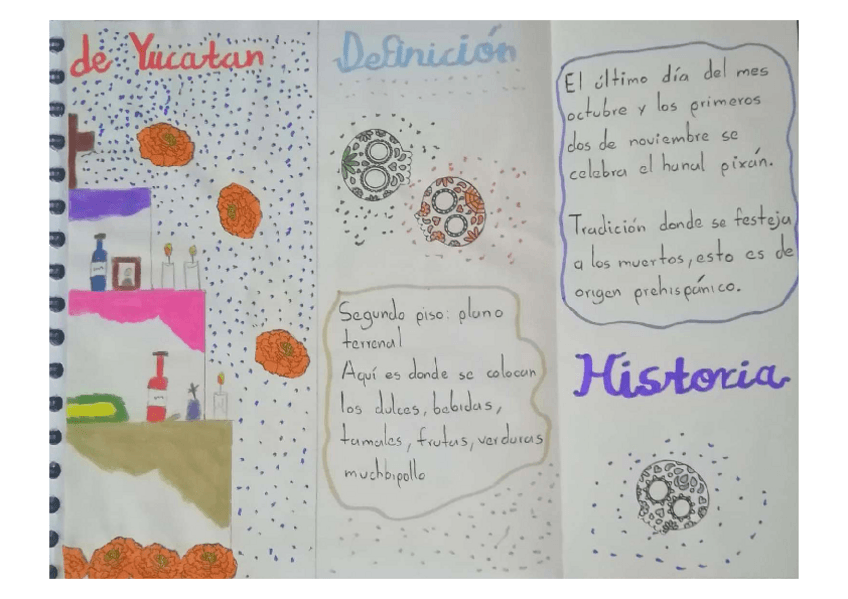 de Yucatan
Definición
Segundo piso: plano
terrenal
Aquí es donde se colocan
los dulces, bebidas,
tamales, frutas, verduras
muchbipollo
El último día del mes
octubre y los primeros
dos de noviembre se
celebra el hanal pixán.
Tradición donde se festeja
a los muertos, esto es de
origen prehispánico.
Historia